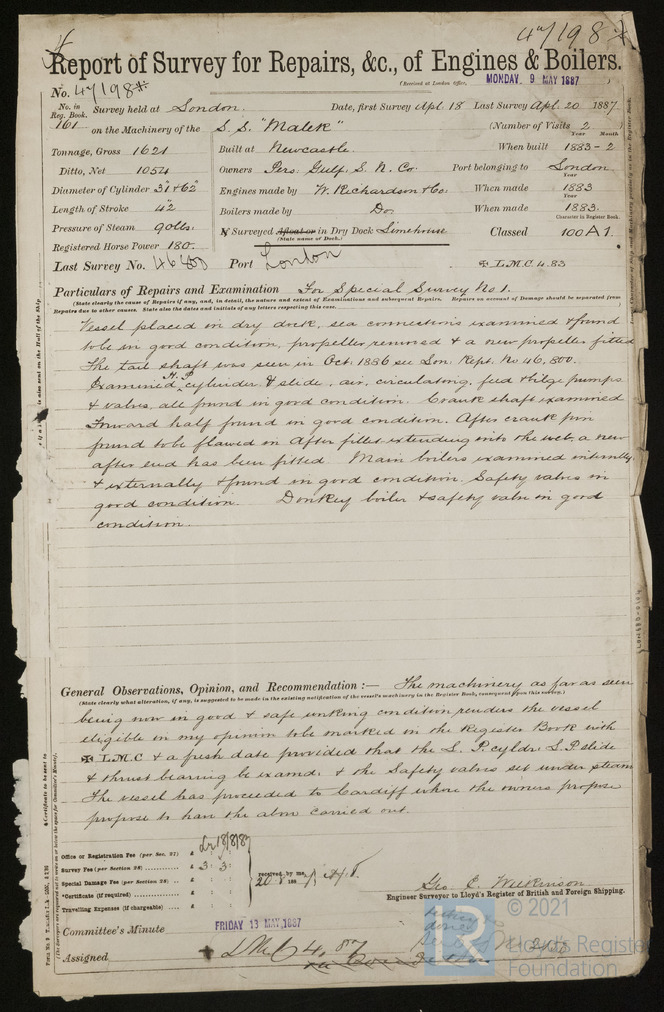 47198
Report of Survey for Repairs, &c., of Engines & Boilers.
(Received at London Office, MONDAY 9 MAY 1887)
No. 47198
No. in Reg. Book. Survey held at London. Date, first Survey Apl. 18 Last Survey Apl. 20 1887
161 on the Machinery of the S. S. "Malek" (Number of Visits 2)
Year Month
Tonnage, Gross 1621 Built at Newcastle. When built 1883-2
Ditto, Net 1054 Owners Pers: Gulf: S. N. Co: Port belonging to London
Year
Diameter of Cylinder 31 & 62" Engines made by W. Richardson & Co: When made 1883
Year
Length of Stroke 42 Boilers made by Do. When made 1883.
Character in Register Book.
Pressure of Steam 90lbs: If Surveyed Afloat or in Dry Dock Limehouse Classed 100A1.
(State name of Dock.)
Registered Horse Power 180.
Last Survey No. 46800 Port London ✠ L.M.C 4.83
Particulars of Repairs and Examination For Special Survey No 1.
(State clearly the cause of Repairs if any, and, in detail, the nature and extent of Examinations and subsequent Repairs. Repairs on account of Damage should be separated from
Repairs due to other causes. State also the dates and initials of any letters respecting this case.
Vessel placed in dry dock, sea connections examined & found
to be in good condition, propeller removed & a new propeller fitted
The tail shaft was seen in Oct: 1886 see Lon: Rept. No 46,800.
Examined H.P. cylinder & slide, air, circulating, feed & bilge pumps
& valves, all found in good condition. Crank shaft examined
Forward half found in good condition. After crank pin
found to be flawed on After fillet extending into the web, a new
after end has been fitted. Main boilers examined internally
& externally & found in good condition. Safety valves in
good condition. Donkey boiler & safety valve in good
condition.
General Observations, Opinion, and Recommendation :— The machinery as far as seen
(State clearly what alteration, if any, is suggested to be made in the existing notification of the vessel's machinery in the Register Book, consequent upon this survey.)
being now in good & safe working condition, renders the vessel
eligible in my opinion to be marked in the Register Book with
✠ L.M.C & a fresh date provided that the L. P. cyldr: L.P slide
& thrust bearing be examd: & the Safety valves set under steam
The vessel has proceeded to Cardiff where the owners propose
propose to have the above carried out.
Office or Registration Fee (per Sec. 27) £ : :
Survey Fee (per Section 28) £ 3 : 3 :
Special Damage Fee (per Section 28) £ : :
Certificate (if required) £ : :
Travelling Expenses (if chargeable) £ : :
received by me,
Geo. E. Wilkinson
Engineer Surveyor to Lloyd's Register of British and Foreign Shipping.
Committee's Minute FRIDAY 13 MAY 1887
Assigned + LMC 4.87
© 2021
LR
Lloyd's Register
Foundation